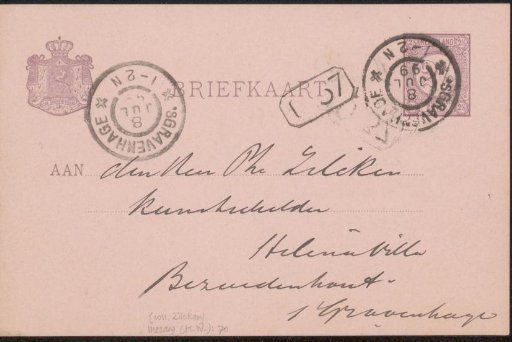 BRIEFKAART
'SGRAVENHAGE
8 JUL
1-2N
'SGRAVENHAGE
8 JUL 99
1-2N
57
AAN den Heer Ph Zilcken
Kunstschilder
Helena Villa
Bezuidenhout
s'Gravenhage
(coll. Zilcken)